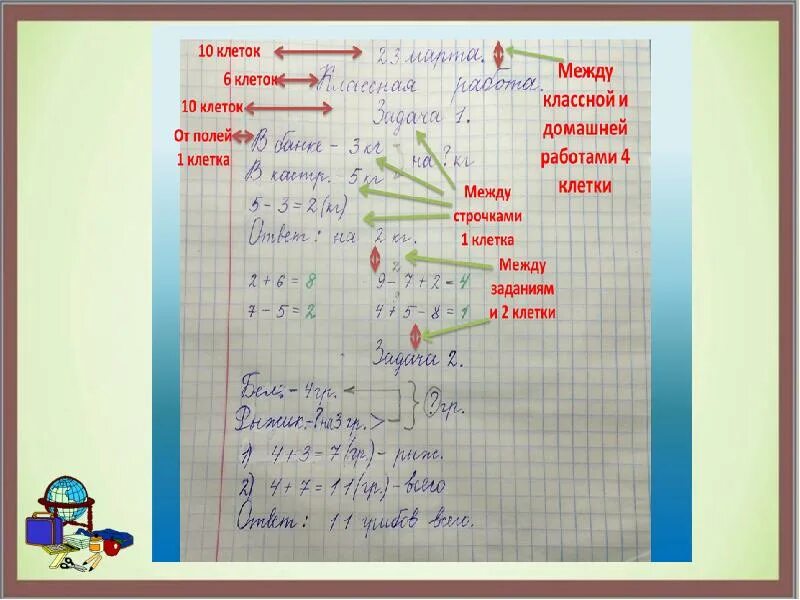 10 клеток
23 марта.
6 клеток
Классная работа.
10 клеток
Задача 1.
От полей
1 клетка
В банке - 3 кг
на ? кг
В кастр. 5 кг
5 - 3 = 2 (кг)
Ответ: на 2 кг.
2 + 6 = 8
9 - 7 + 2 = 4
7 - 5 = 2
4 + 5 - 8 = 1
Задача 2.
Бел. - 4 гр.
? гр.
Рыжик. - ? на 3 гр. >
1) 4 + 3 = 7 (гр.) - рыж.
2) 4 + 7 = 11 (гр.) - всего
Ответ: 11 грибов всего.
Между
классной и
домашней
работами 4
клетки
Между
строчками
1 клетка
Между
заданиям
и 2 клетки